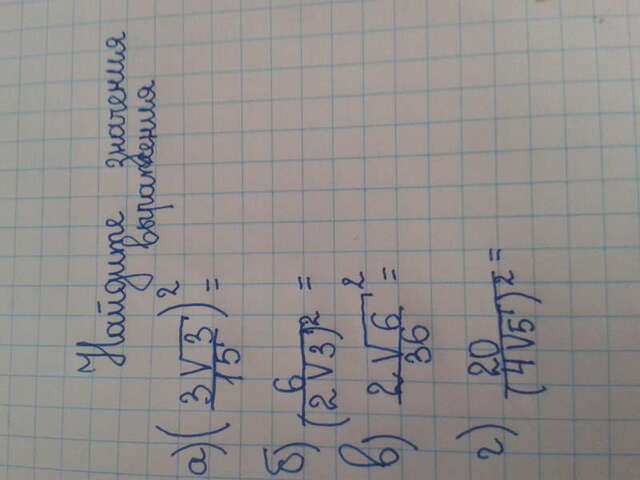 Найдите значения
выражения
а) (3√3/15)² =
б) 6/(2√3)² =
в) 2√6²/36 =
г) 20/(4√5)² =